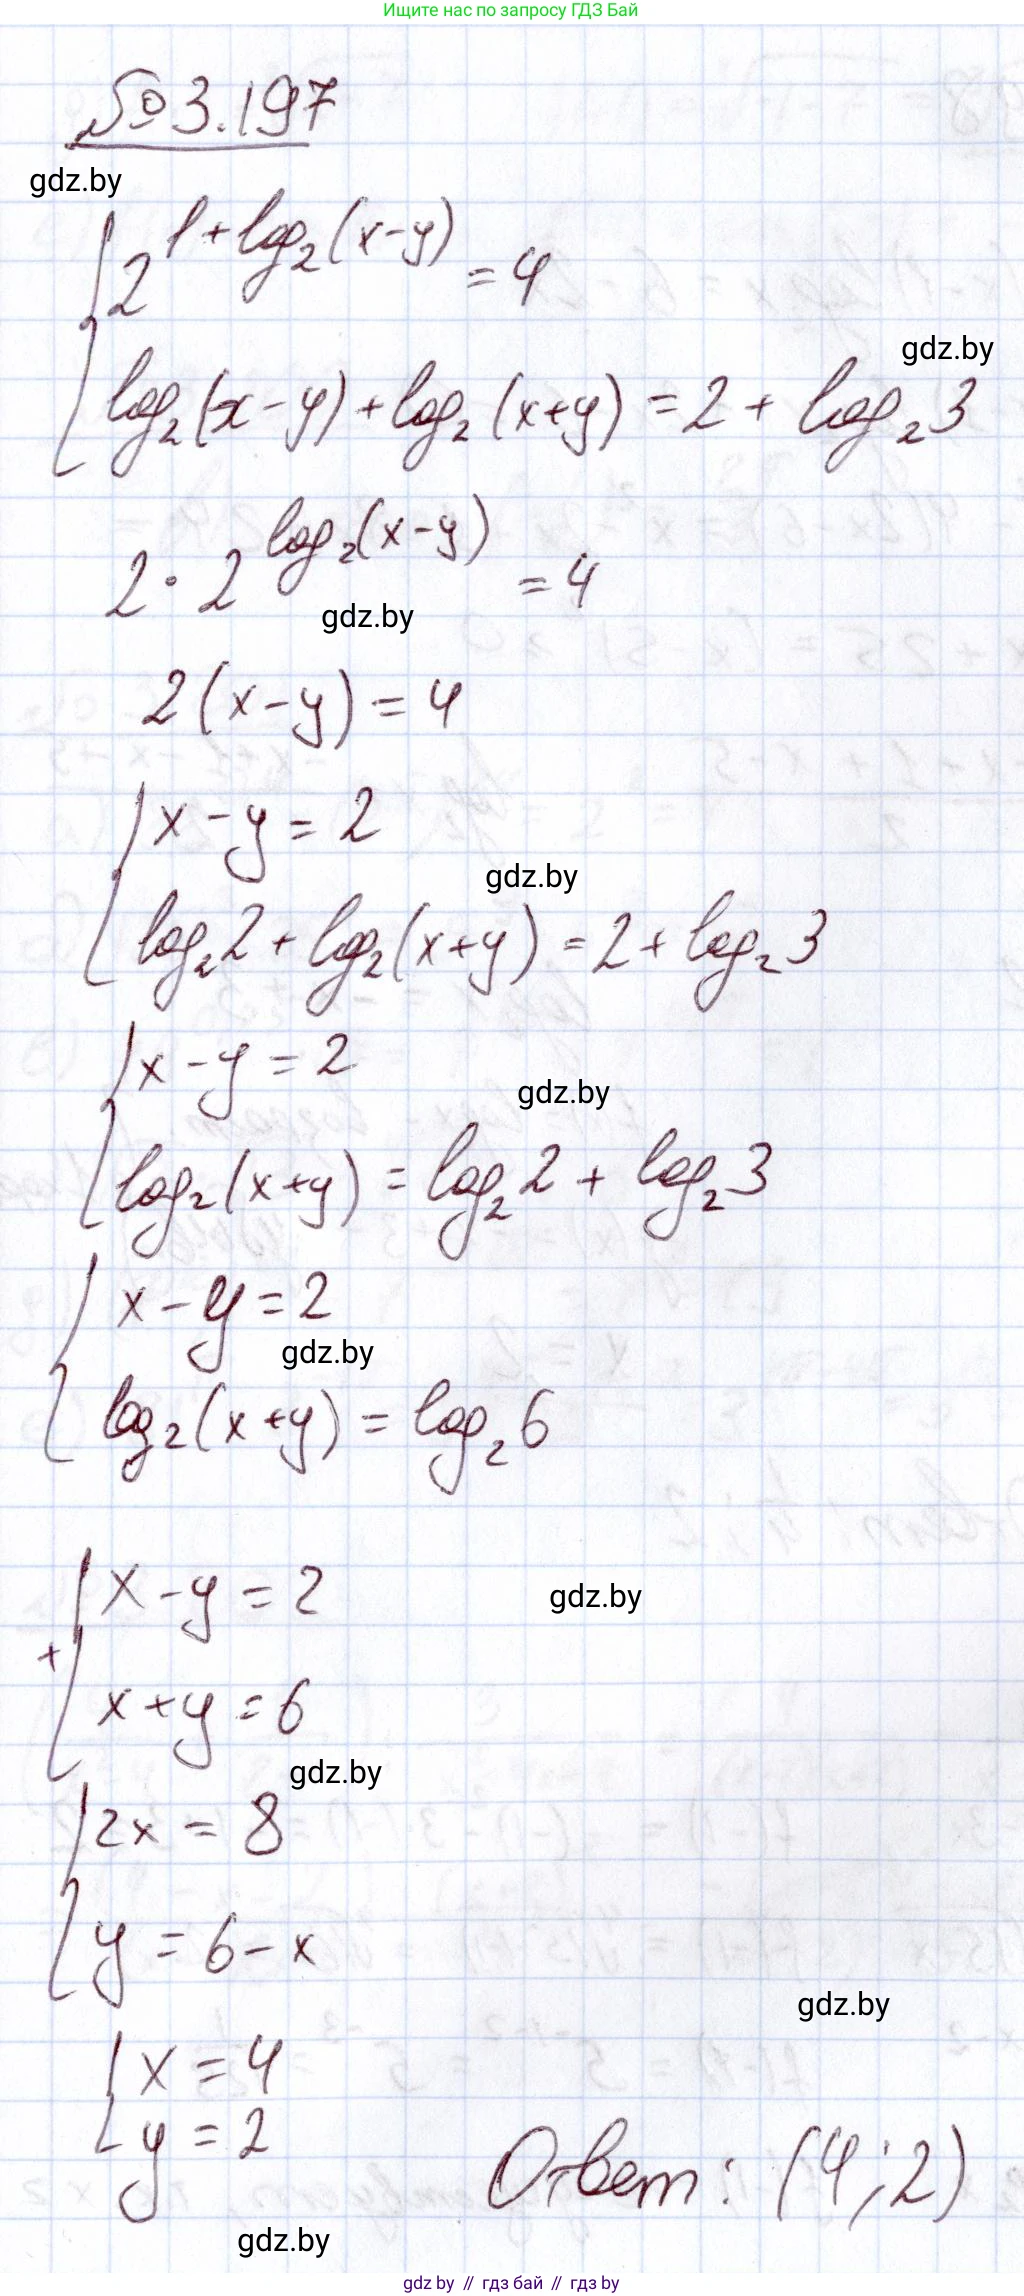 Ищите нас по запросу ГДЗ Бай
№3.197
gdz.by
2^{1+log₂(x-y)} = 4
gdz.by
log₂(x-y) + log₂(x+y) = 2 + log₂3
2 · 2^{log₂(x-y)} = 4
gdz.by
2(x-y) = 4
x - y = 2
gdz.by
log₂2 + log₂(x+y) = 2 + log₂3
x - y = 2
gdz.by
log₂(x+y) = log₂2 + log₂3
x - y = 2
gdz.by
log₂(x+y) = log₂6
x - y = 2
gdz.by
+
x + y = 6
gdz.by
2x = 8
y = 6 - x
gdz.by
x = 4
y = 2
Ответ: (4; 2)
gdz.by
gdz.by // гдз бай // gdz.by